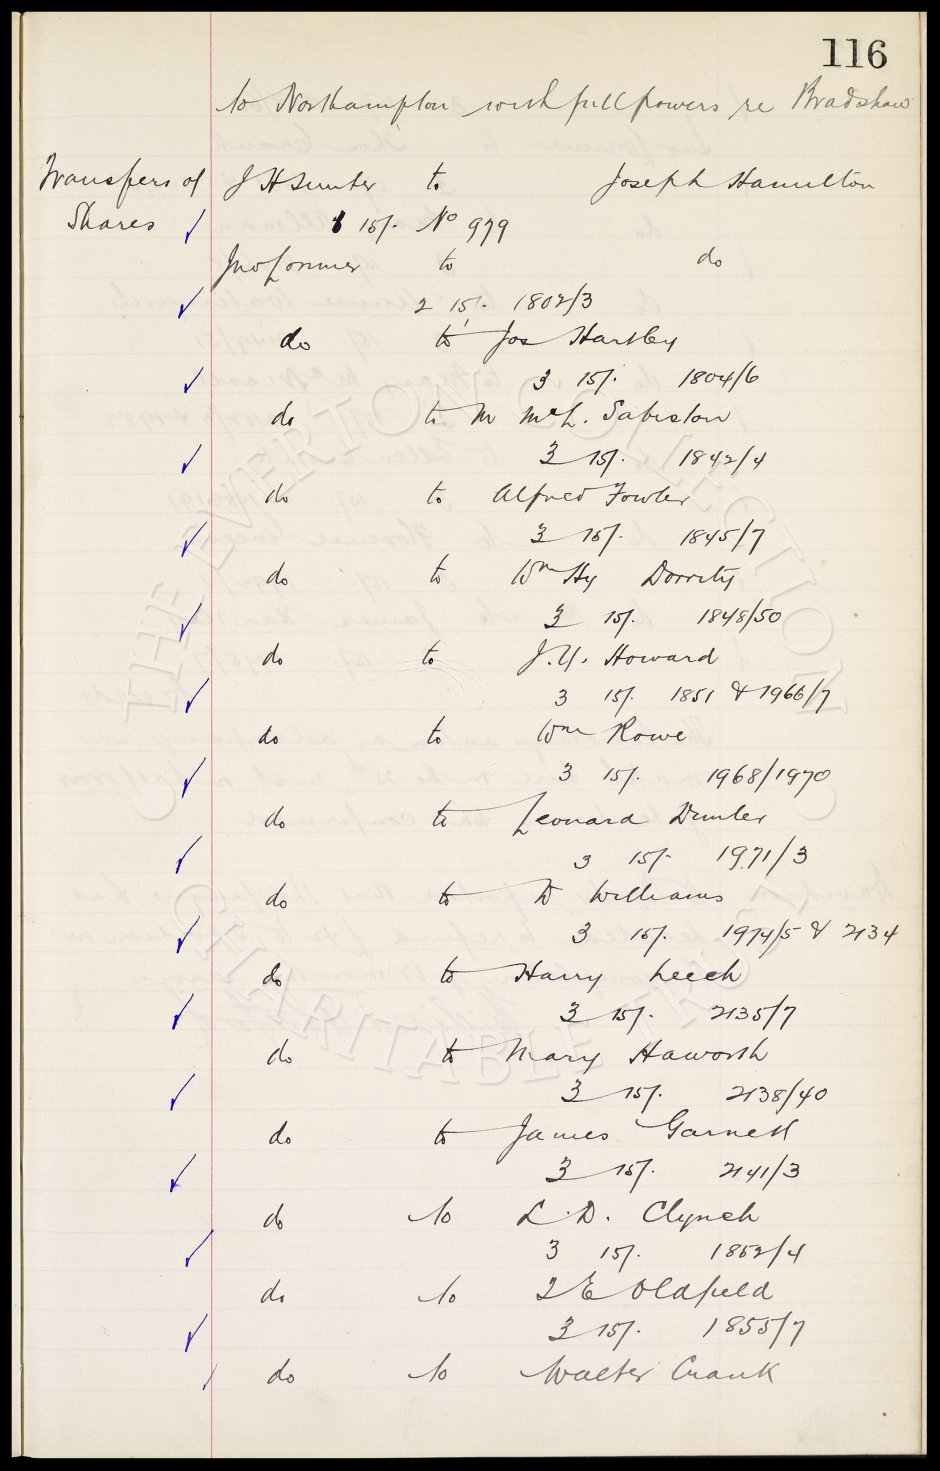 116
to Northampton with full powers re Bradshaw
Transfers of J H Sumter to Joseph Hamilton
Shares 1 15/- No 979
Jno Lorimer to do
2 15/- 1802/3
do to Jos Hartley
3 15/- 1804/6
do to M McL. Sabiston
3 15/- 1842/4
do to Alfred Fowler
3 15/- 1845/7
do to Wm Hy Dorrity
3 15/- 1848/50
do to J. Y. Howard
3 15/- 1851 & 1966/7
do to Wm Rowe
3 15/- 1968/1970
do to Leonard Dumler
3 15/- 1971/3
do to D Williams
3 15/- 1974/5 & 2134
do to Harry Leech
3 15/- 2135/7
do to Mary Haworth
3 15/- 2138/40
do to James Garnett
3 15/- 2141/3
do to L. D. Clynch
3 15/- 1852/4
do to E Oldfield
3 15/- 1855/7
do to Walter Crank
THE EVERTON COLLECTION
CHARITABLE TRUST